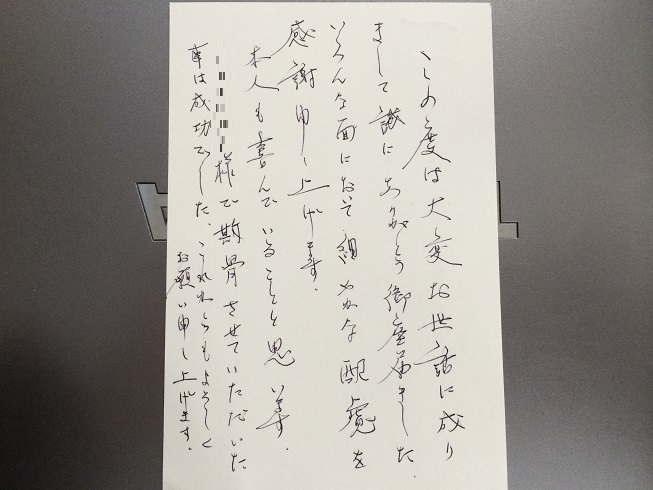 この度は大変お世話に成り
まして誠にありがとう御座居ました。
いろんな面において細やかな配慮を
感謝申し上げます。
本人も喜んでいることと思います。
様で散骨させていただいた
事は成功でした。これからもよろしく
お願い申し上げます。